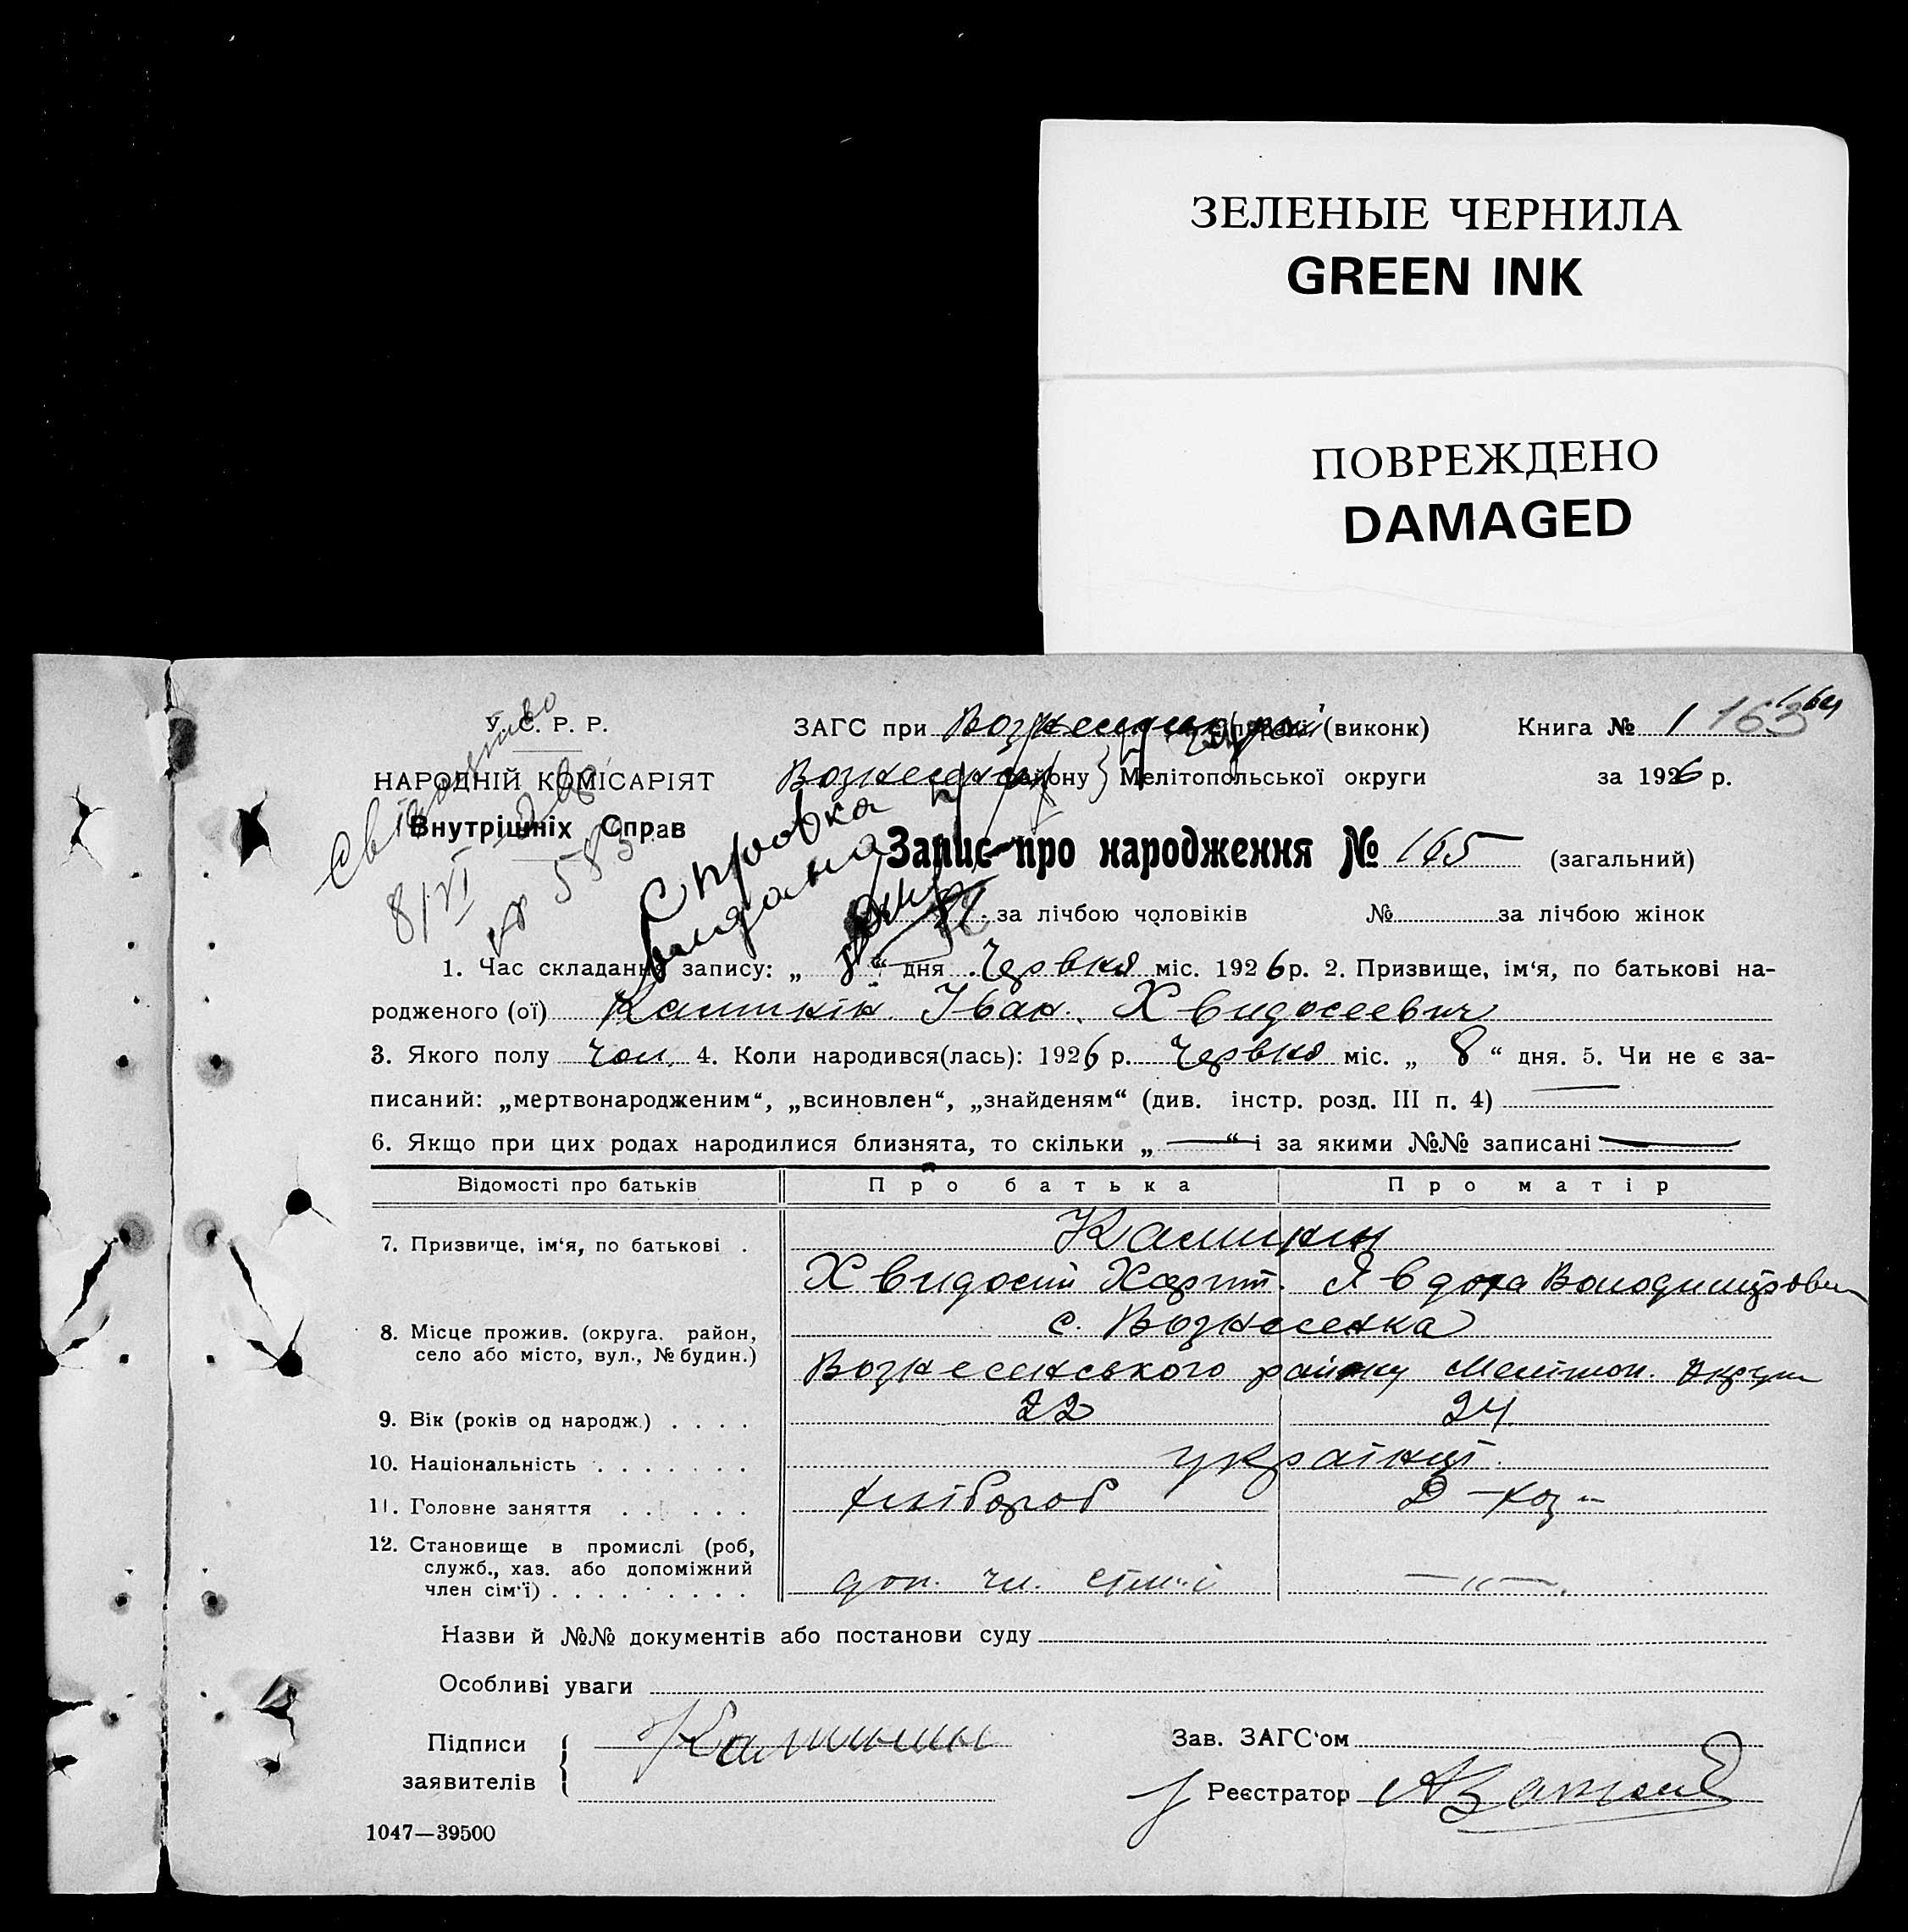 ЗЕЛЕНЫЕ ЧЕРНИЛА
GREEN INK
ПОВРЕЖДЕНО
DAMAGED
У. С. Р. Р.
НАРОДНІЙ КОМІСАРІЯТ
Внутрішніх Справ
8/VI
Справка
видана
ЗАГС при (виконк) Книга № 1 163
району Мелітопольської округи за 1926 р.
Запис про народження № 165 (загальний)
за лічбою чоловіків № за лічбою жінок
1. Час складання запису: „ “ дня Червня міс. 1926 р. 2. Призвище, ім‘я, по батькові на-
родженого (ої) Іван Хвидосеевич
3. Якого полу чол. 4. Коли народився(лась): 1926 р. Червня міс. „ 8 “ дня. 5. Чи не є за-
писаний: „мертвонародженим“, „всиновлен“, „знайденям“ (див. інстр. розд. III п. 4) —
6. Якщо при цих родах народилися близнята, то скільки „ — “ і за якими №№ записані —
Відомості про батьків Про батька Про матір
7. Призвище, ім‘я, по батькові .
Хвидосій Харит. Явдоха Володимировн
8. Місце прожив. (округа. район,
село або місто, вул., № будин.)
с. Вознесенка
Вознесенського району Мелітоп. округи
9. Вік (років од народж.) . . . . 22 24
10. Національність . . . . . . . українці.
11. Головне заняття . . . . . . хлібороб
12. Становище в промислі (роб,
служб., хаз. або допоміжний
член сім‘ї) . . . . . . . . . доп. чл. сім'ї — „ —
Назви й №№ документів або постанови суду
Особливі уваги
Підписи
заявителів
Зав. ЗАГС‘ом
Реєстратор
1047—39500